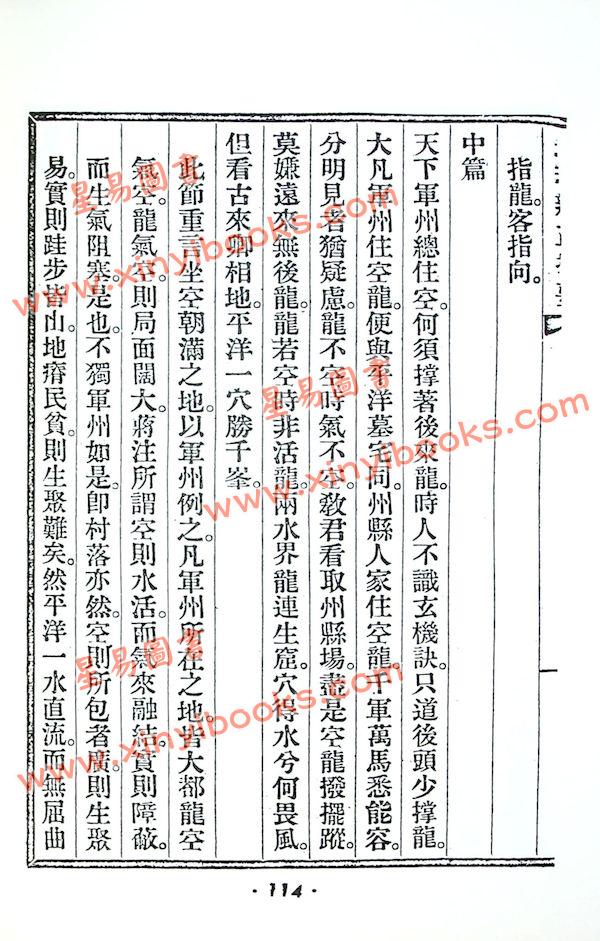 指龍客指向。
中篇
天下軍州總住空。何須撐著後來龍。時人不識玄機訣。只道後頭少撐龍。
大凡軍州住空龍。便與平洋墓宅同。州縣人家住空龍。千軍萬馬悉能容。
分明見者猶疑慮。龍不空時氣不空。教君看取州縣場。盡是空龍撥擺蹤。
莫嫌遠來無後龍。龍若空時非活龍。兩水界龍連生窟。穴得水兮何畏風。
但看古來卿相地。平洋一穴勝千峯。
此節重言坐空朝滿之地。以軍州例之。凡軍州所在之地。皆大都龍空
氣空。龍氣空。則局面闊大。蔣注所謂空則水活。而氣來融結。實則障蔽。
而生氣阻塞是也。不獨軍州如是。卽村落亦然。空則所包者廣。則生聚
易。實則跬步皆山。地瘠民貧。則生聚難矣。然平洋一水直流。而無屈曲
·114·
星易圖書
www.xinyibooks.com
星易圖書
www.xinyibooks.com
星易圖書
www.xinyibooks.com